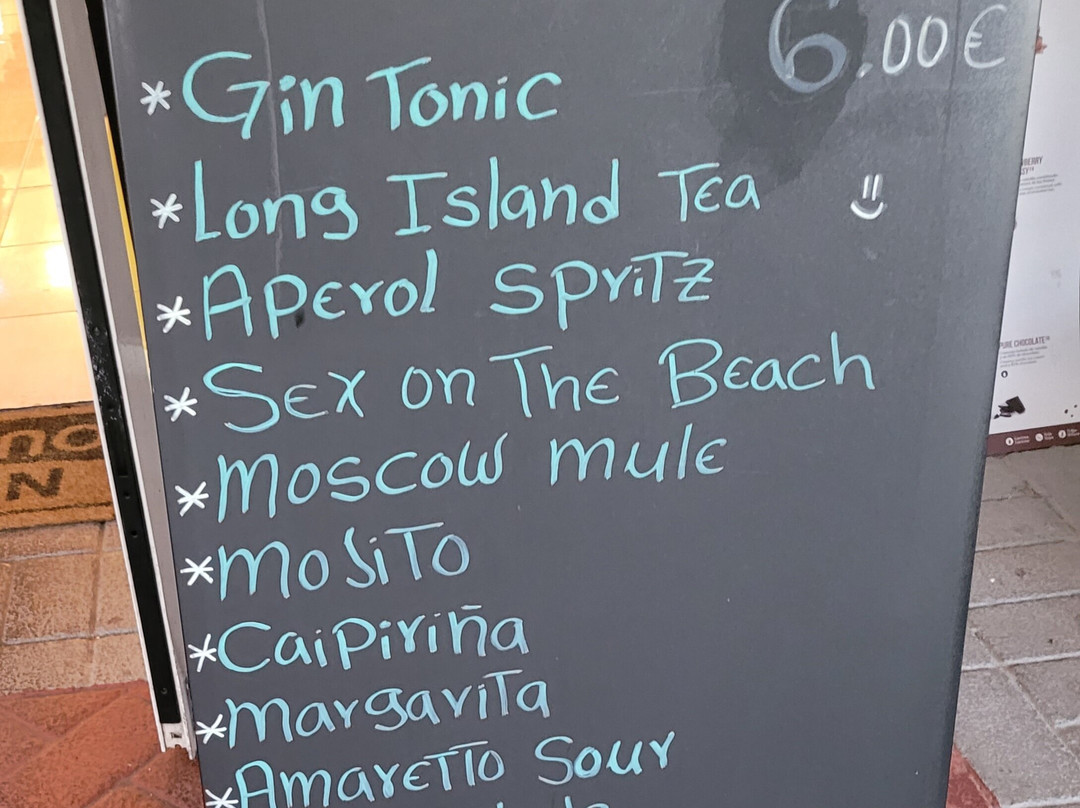 6.00€
* Gin Tonic
* Long Island Tea
* Aperol Spritz
* Sex on The Beach
* Moscow mule
* Mojito
* Caipiriña
* Margarita
* Amaretto Sour
PURE CHOCOLATE™
N